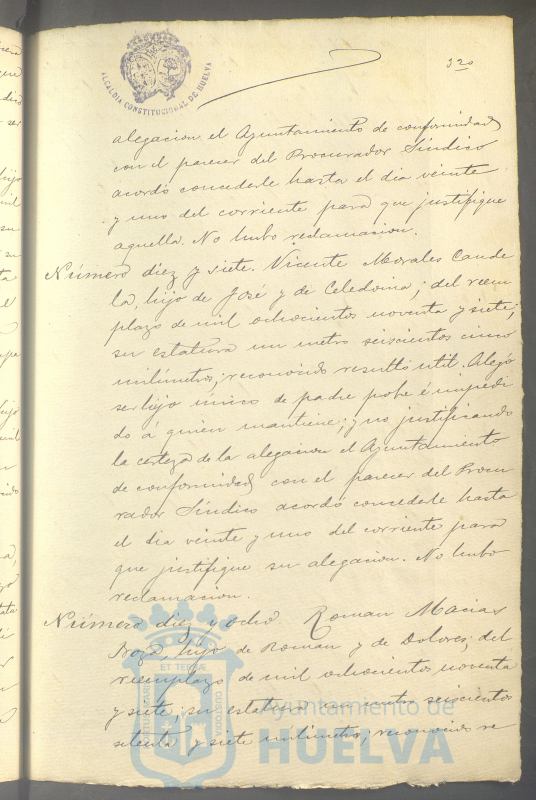 ALCALDIA CONSTITUCIONAL DE HUELVA
320
alegacion el Ayuntamiento de conformidad
con el parecer del Procurador Síndico
acordó concederle hasta el dia veinte
y uno del corriente para que justifique
aquella. No hubo reclamacion.
Número diez y siete. Vicente Morales Cande
la, hijo de José y de Celedonia; del reem
plazo de mil ochocientos noventa y siete;
su estatura un metro seiscientos cinco
milímetros; reconocido resultó útil. Alegó
ser hijo único de padre pobre é impedi
do á quien mantiene; y no justificando
la certeza de la alegacion el Ayuntamiento
de conformidad con el parecer del Procu
rador Síndico acordó concederle hasta
el dia veinte y uno del corriente para
que justifique su alegacion. No hubo
reclamacion.
Número diez y ocho Roman Macias
hijo de Roman y de Dolores; del
reemplazo de mil ochocientos noventa
y siete; su estatura un metro seiscientos
setenta y siete milímetros; reconocido re
Ayuntamiento de
HUELVA